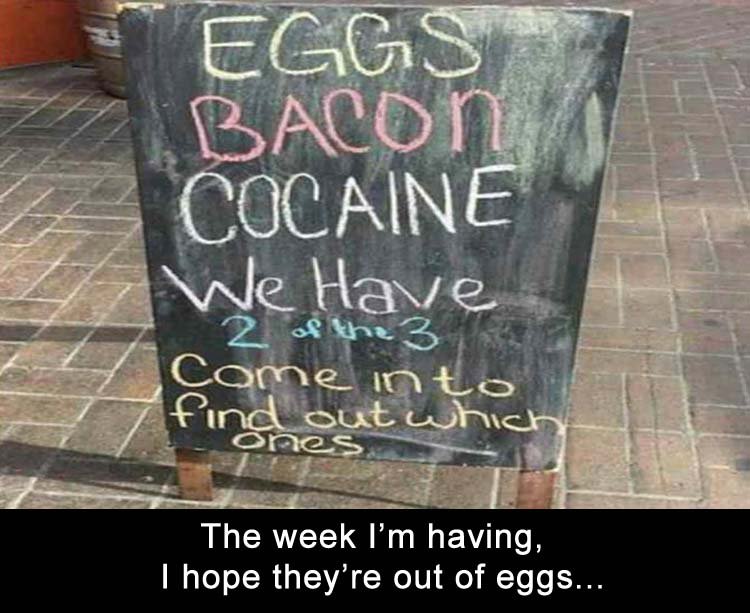 EGGS
BACON
COCAINE
We Have
2 of the 3
Come in to
find out which
ones
The week I'm having,
I hope they're out of eggs...